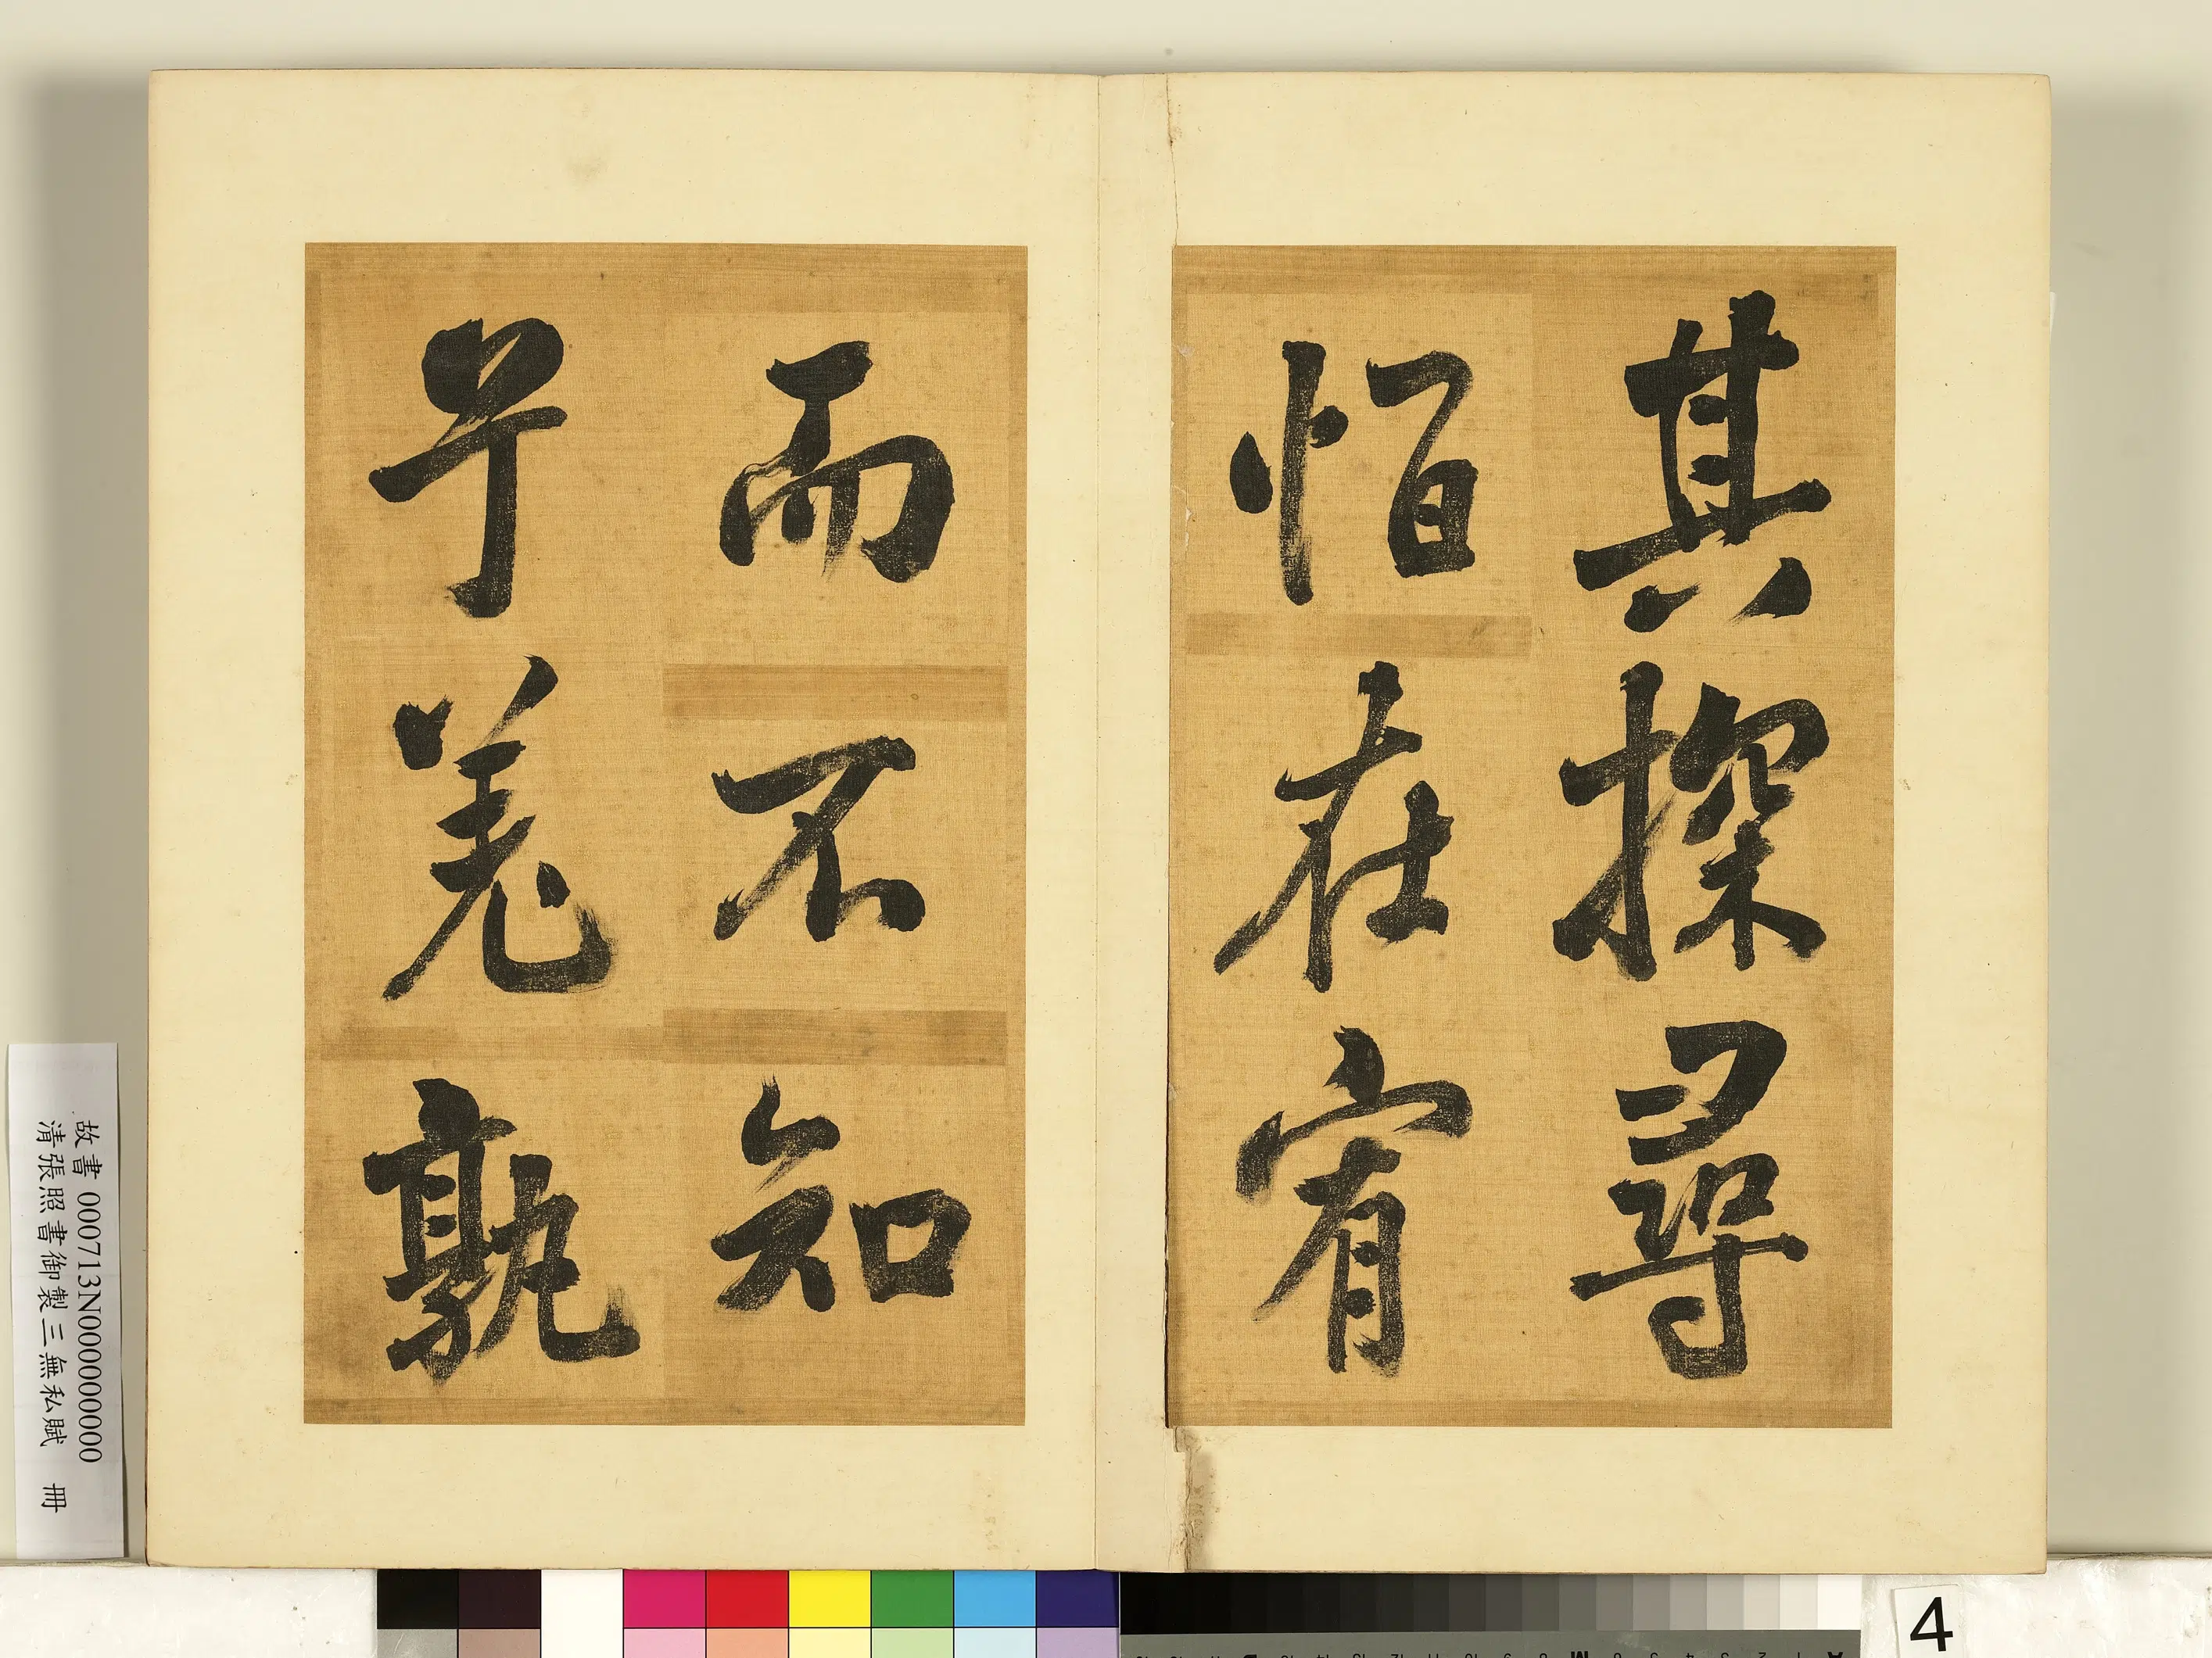 其探尋
在宥
而不知
兮羌孰
故書 000713N000000000
清張照書御製三無私賦 冊
4